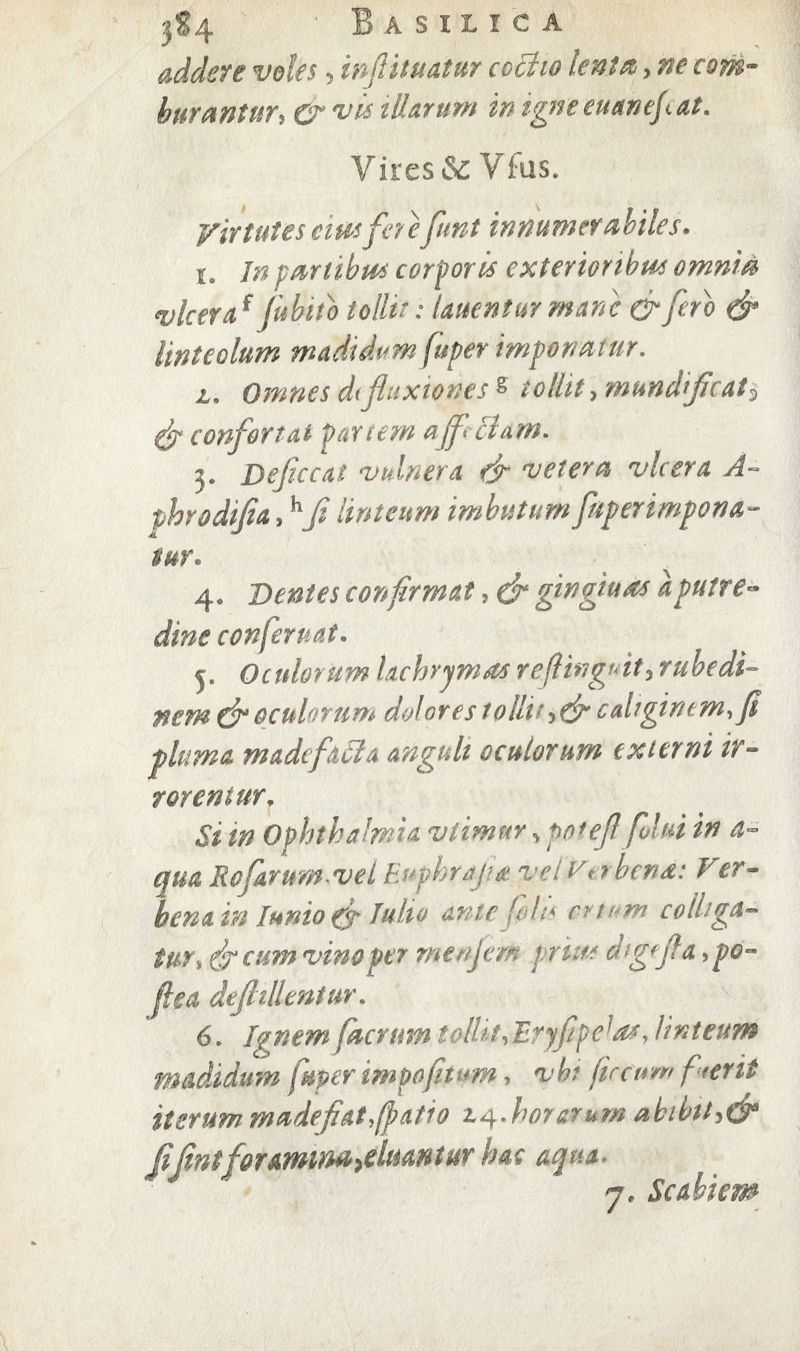 384 BASILICA
addere voles, inſtituatur coctio lenta, ne com-
burantur, & vis illarum in igne euaneſcat.
Vires & Vſus.
Virtutes eius ferè ſunt innumerabiles.
1. In partibus corporis exterioribus omnia
vlcera f ſubitò tollit : lauentur manè & ſerò &
linteolum madidum ſuper imponatur.
2. Omnes defluxiones g tollit, mundificat,
& confortat partem affectam.
3. Deſiccat vulnera & vetera vlcera A-
phrodiſia, h ſi linteum imbutum ſuperimpona-
tur.
4. Dentes confirmat, & gingiuas à putre-
dine conſeruat.
5. Oculorum lachrymas reſtinguit, rubedi-
nem & oculorum dolores tollit, & caliginem, ſi
pluma madefacta anguli oculorum externi ir-
rorentur.
Si in Ophthalmia vtimur, poteſt ſolui in a-
qua Roſarum. vel Euphraſiæ vel Verbenæ: Ver-
bena in Iunio & Iulio ante ſolis ortum colliga-
tur, & cum vino per menſem prius digeſta, po-
ſtea deſtillentur.
6. Ignem ſacrum tollit, Eryſipelas, linteum
madidum ſuper impoſitum, vbi ſiccum fuerit
iterum madefiat, ſpatio 24. horarum abibit, &
ſi ſint foramina, eluantur hac aqua.
7. Scabiem